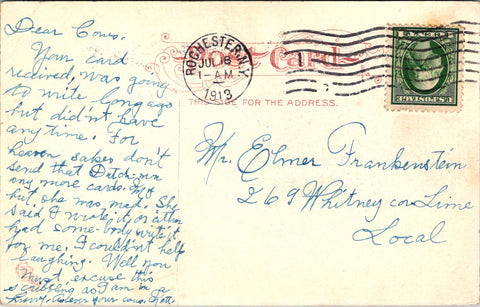 Dear Cous.
Your card
recieved, was going
to write long ago
but didn't have
any time. For
heaven sakes don't
send that Dutch
any more cards. My
but, she was mad. She
said I wrote it, or either
had some-body write it
for me. I couldn't help
laughing. Well you
must excuse this
scribbling as I am in a
hurry. your cous.
Post Card
ROCHESTER, N.Y.
JUL 8
1-AM
1913
THIS SIDE FOR THE ADDRESS.
U.S. POSTAGE
Mr. Elmer Frankenstein
269 Whitney co Lime
Local